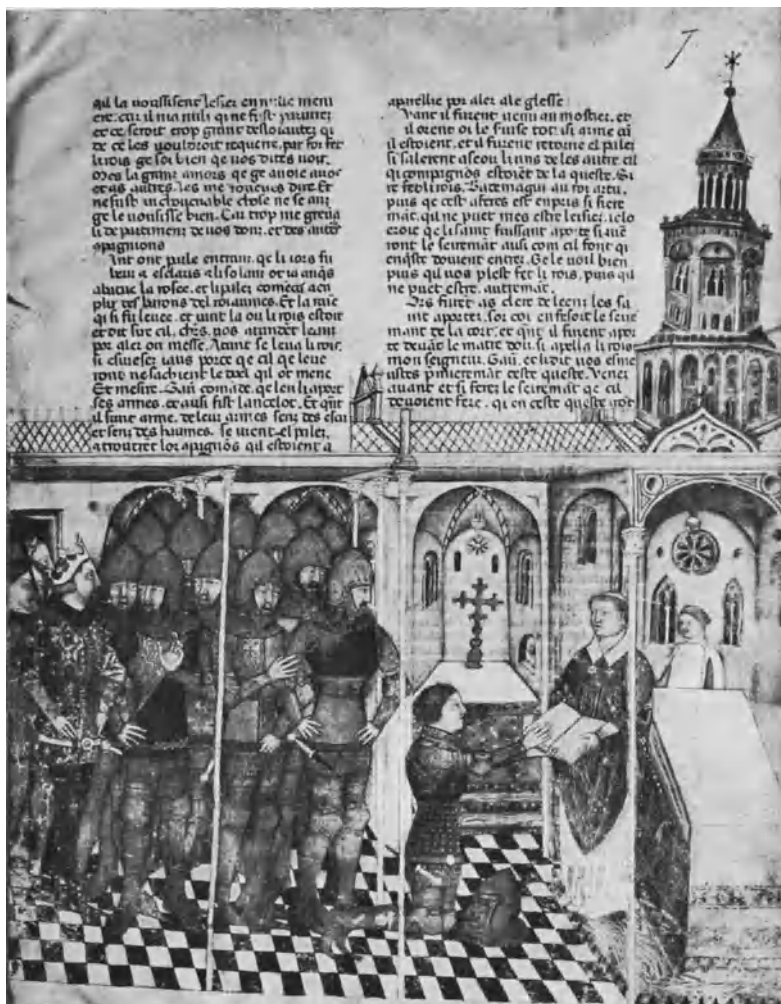 qil la uoussisent lesier en nulle meni
ere. car il ni a nuli qi ne fust
et ce seroit trop grant desloiautez qi
de ce les uoudroit requerre. par foi fet
li rois ge soi bien qe uos dites uoir.
mes la grant amors qe ge auoie a uos
et as autres. les me dire. Et
ne fust chose ne se
ge le uousisse bien. Car trop me greua
li de partiment de uos donc. et des autres
apignions
Ant ont parle entraus. qe li iors fu
biaus esclaris a li solaus oit ia auqes
abatue la rosee. et li palez comeca a en
plir des barons del roiaumes. Et la
qi si fu leuee. et uint la ou li rois estoit
et dit sire cil. chrs. uos atendent leianz
por aler on messe. Atant se leua li rois.
si essuie ses iauz por ce qe cil qe le ue
ront ne sachent le duel qil ot mene
Et mesire. Gau comade. qe len li aport
ses armes. et ausi fist lancelot. Et qnt
il furet arme. de leur armes senz des escuz
et senz des hiaumes. se uient el palez.
a trouuent lor apignos qil estoient a
apareillie por aler a le glesse
Vant il furent uenu au mostier. et
il orent oi le seruise tot isi arme cu
il estoient. et il furent retorne el palez
si s'alerent aseoir li uns de les autre. cil
qi compignos estoiet de la queste. Si
re fet li rois. Bademagu au roi artu.
puis qe cest afers est enpris si fiere
mat. qi ne puet mes estre lesiez. ie lo
eroie qe li saint fuissant aporte si iure
ront le seiremat ausi com cil font qi
en qste doiuent entrer. Ge le uoil bien
puis qil uos plest fet li rois. puis qil
ne puet estre. autremat.
Ors furet as clerc de leenz les sa
inz aporter. sor coi en fesoit le seire
mant de la cort. et qnt il furent apor
te deuat le maitre dois. si apella li rois
mon seigneur. Gau. et li dit uos esme
ustes primieremat ceste queste. Venez
auant et si ferez le seiremat qe cil
deuoient fere. qi en ceste queste